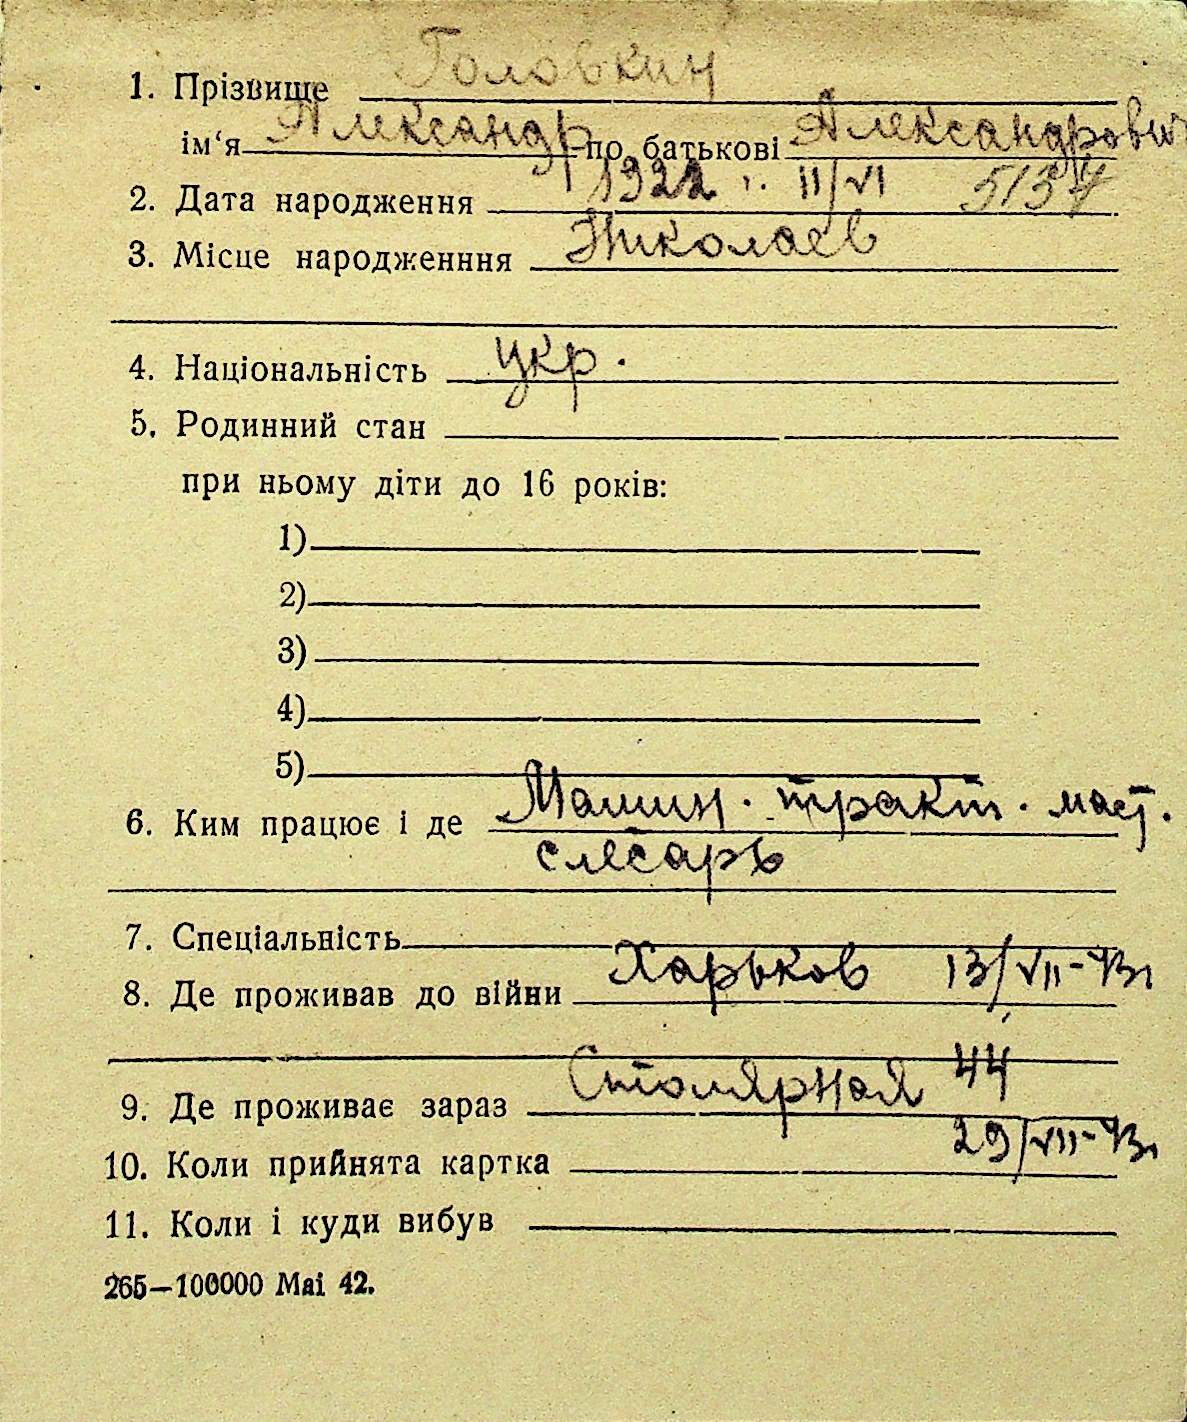 1. Прізвище Головкин
ім‘я Александр по батькові Александрович
2. Дата народження 1922 г. 11/VI 5134
3. Місце народженння Николаев
4. Національність укр.
5. Родинний стан
при ньому діти до 16 років:
1)
2)
3)
4)
5)
6. Ким працює і де Машин. тракт. маст.
слесарь
7. Спеціальність
8. Де проживав до війни Харьков 13/VII-43г
9. Де проживає зараз Столярная 44
10. Коли прийнята картка 29/VII-43г
11. Коли і куди вибув
265—100000 Mai 42.